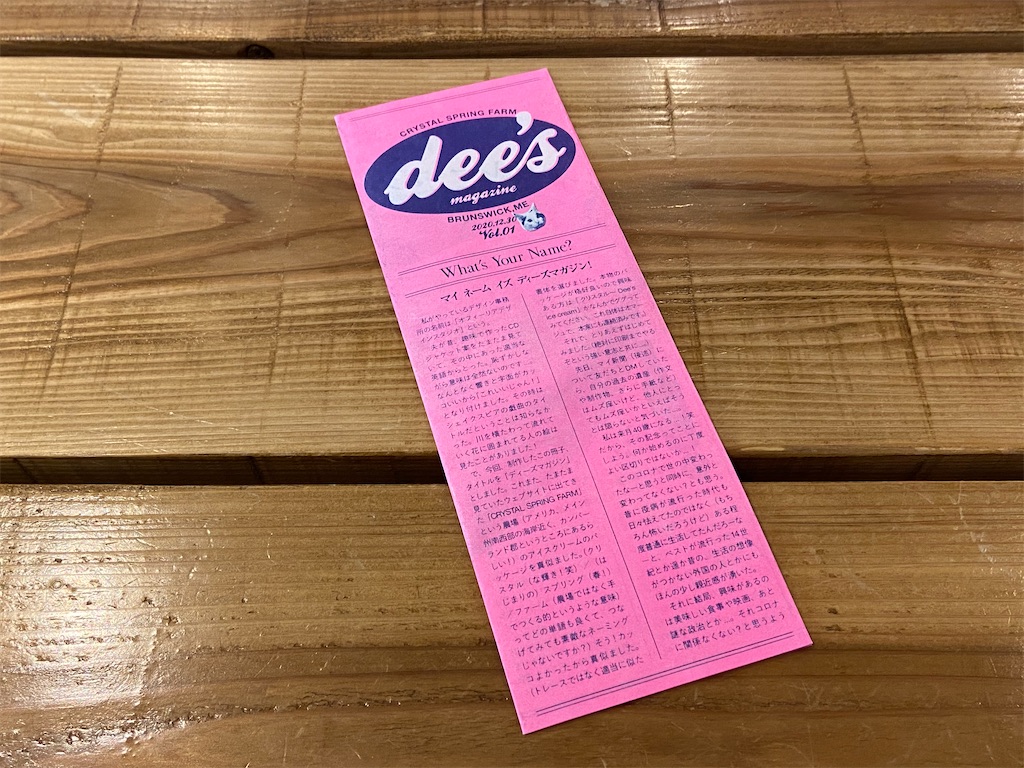 CRYSTAL SPRING FARM
dee's
magazine
BRUNSWICK, ME
2020.12.30
Vol.01
What's Your Name?
マイ ネーム イズ ディーズマガジン!
私がやっているデザイン事務
所の名前は「オフィーリアデザ
インスタジオ」という。
夫が昔、趣味で作ったCD
ジャケット案をたまたま見て
いて、その中にあった適当な
英語からとった。恥ずかしな
がら意味は全然ないのです
なんとなく響きと字面がカッ
コいいから「これいいじゃん!」
となり付けました。その時は
シェイクスピアの戯曲のタイ
トルだということは知らなか
った。川を横たわって流れて
いく花に囲まれてる人の絵は
見たことがありました!
で、今回、制作したこの冊子、
タイトルを「ディーズマガジン」
としました。これまた、たまたま
見ていたウェブサイトに出てき
た「CRYSTAL SPRING FARM」
という農場(アメリカ、メイン
州南西部の海岸近く、カンバー
ランド郡というところにあるら
しい!)のアイスクリームのパ
ッケージを真似ました。(クリ
スタル(な輝き!笑)/(は
じまりの)スプリング(春!)
/ファーム(農場ではなく手
でつくる的というような意味)
ってどの単語も良くて、つな
げてみても素敵なネーミング
じゃないですか?)そう!カッ
コよかったから真似ました。
(トレースではなく適当に似た
書体を選びました。本物のパ
ッケージが格好良いので興味
ある方は「クリスタル〜 Dee's
ice cream」かなんかでググって
みてください。これ自体はオマー
ジュで、本家にも連絡済みです。)
それで、とりあえずはじめて
みました。(絶対に印刷までやる
ぞという強い意志と共に…)
先日、マイ新聞(後述)に
ついて友だちとDMしていた
ら、自分の過去の遺産(作文
や制作物、さらに手紙など)
はムズ痒いけど、他人にとっ
てもムズ痒いかといえばそう
とは限らないと気づいた…。
私は来月40歳になる…!笑
だから、その記念ってことに
しよう。何か始めるのに丁度
よい区切りではないか…。
このコロナで世の中変わっ
たな〜と思うと同時に、意外と
変わってなくない?とも思う。
昔に疫病が流行った時代も
日々怯えてたのではなく(もち
ろん怖いだろうけど)ある程
度普通に生活してたんだろーな
ーと、ペストが流行った14世
紀とか遥か昔の、生活の想像
がつかない外国の人とかにも
ほんの少し親近感が湧いた。
それに結局、興味があるの
は美味しい食事や映画、あと
謎な政治とか…。それコロナ
に関係なくない?と思うよう